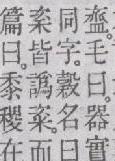 毛曰。器實
同字。穀名曰
皆譌粢。而
篇曰。黍稷在